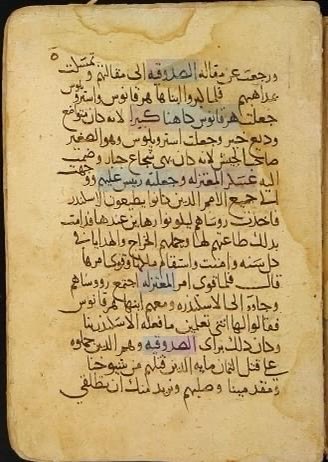 ورجعت عن مقالة الصدوقية الى مقالتهم وتمسكت
بمذاهبهم فلما كبروا ابناها هرقانوس واستروبلوس
جعلت هرقانوس كاهنا كبيرا لانه كان متواضع
وديع خير وجعلت استروبلوس وهو الصغير
صاحب الجيش لانه كان بهي شجاع جبار وضمت
اليه عسكر المعتزله وجعلته ريس عليهم ووجهت
الى جميع الامرا الذين كانوا يطيعون الاسكندر
فاخذت روساهم ليكونوا رهاين عندها فدامت
بذلك طاعتهم لها وحملهم الخراج والهدايا في
كل سنه وامنت واستقام ملكها وقوي امرها
قال فلما قوي امر المعتزله اجتمع رووساهم
وجاوا الى الاسكندره ومعهم ابنها هرقانوس
فقالوا لها انتي تعلمين ما فعله الاسكندر بنا
وكان ذلك براي الصدوقيه وهم الذين حملوه
على قتل الثمان مايه الذين قتلهم من شيوخنا
ومقدمينا وصلبهم ونريد منك ان تطلقي